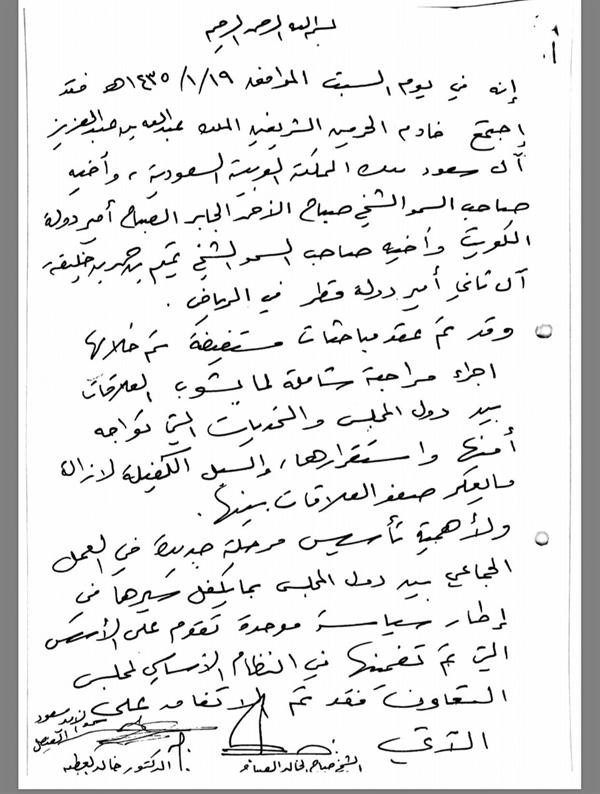 بسم الله الرحمن الرحيم
إنه في يوم السبت الموافق ١٤٣٥/١/١٩هـ فقد
إجتمع خادم الحرمين الشريفين الملك عبدالله بن عبدالعزيز
آل سعود ملك المملكة العربية السعودية، وأخيه
صاحب السمو الشيخ صباح الأحمد الجابر الصباح أمير دولة
الكويت وأخيه صاحب السمو الشيخ تميم بن حمد بن خليفة
آل ثاني أمير دولة قطر في الرياض.
وقد تم عقد مباحثات مستفيضة تم خلالها
اجراء مراجعة شاملة لما يشوب العلاقات
بين دول المجلس والتحديات التي تواجه
أمنها واستقرارها، والسبل الكفيلة لازالة
مايعكر صفو العلاقات بينها.
ولأهمية تأسيس مرحلة جديدة في العمل
الجماعي بين دول المجلس بما يكفل سيرها في
إطار سياسة موحدة تقوم على الأسس
التي تم تضمينها في النظام الأساسي لمجلس
التعاون فقد تم الاتفاق على
الآتي
سعود
الفيصل
الشيخ صباح الخالد الصباح
الدكتور خالد العطية